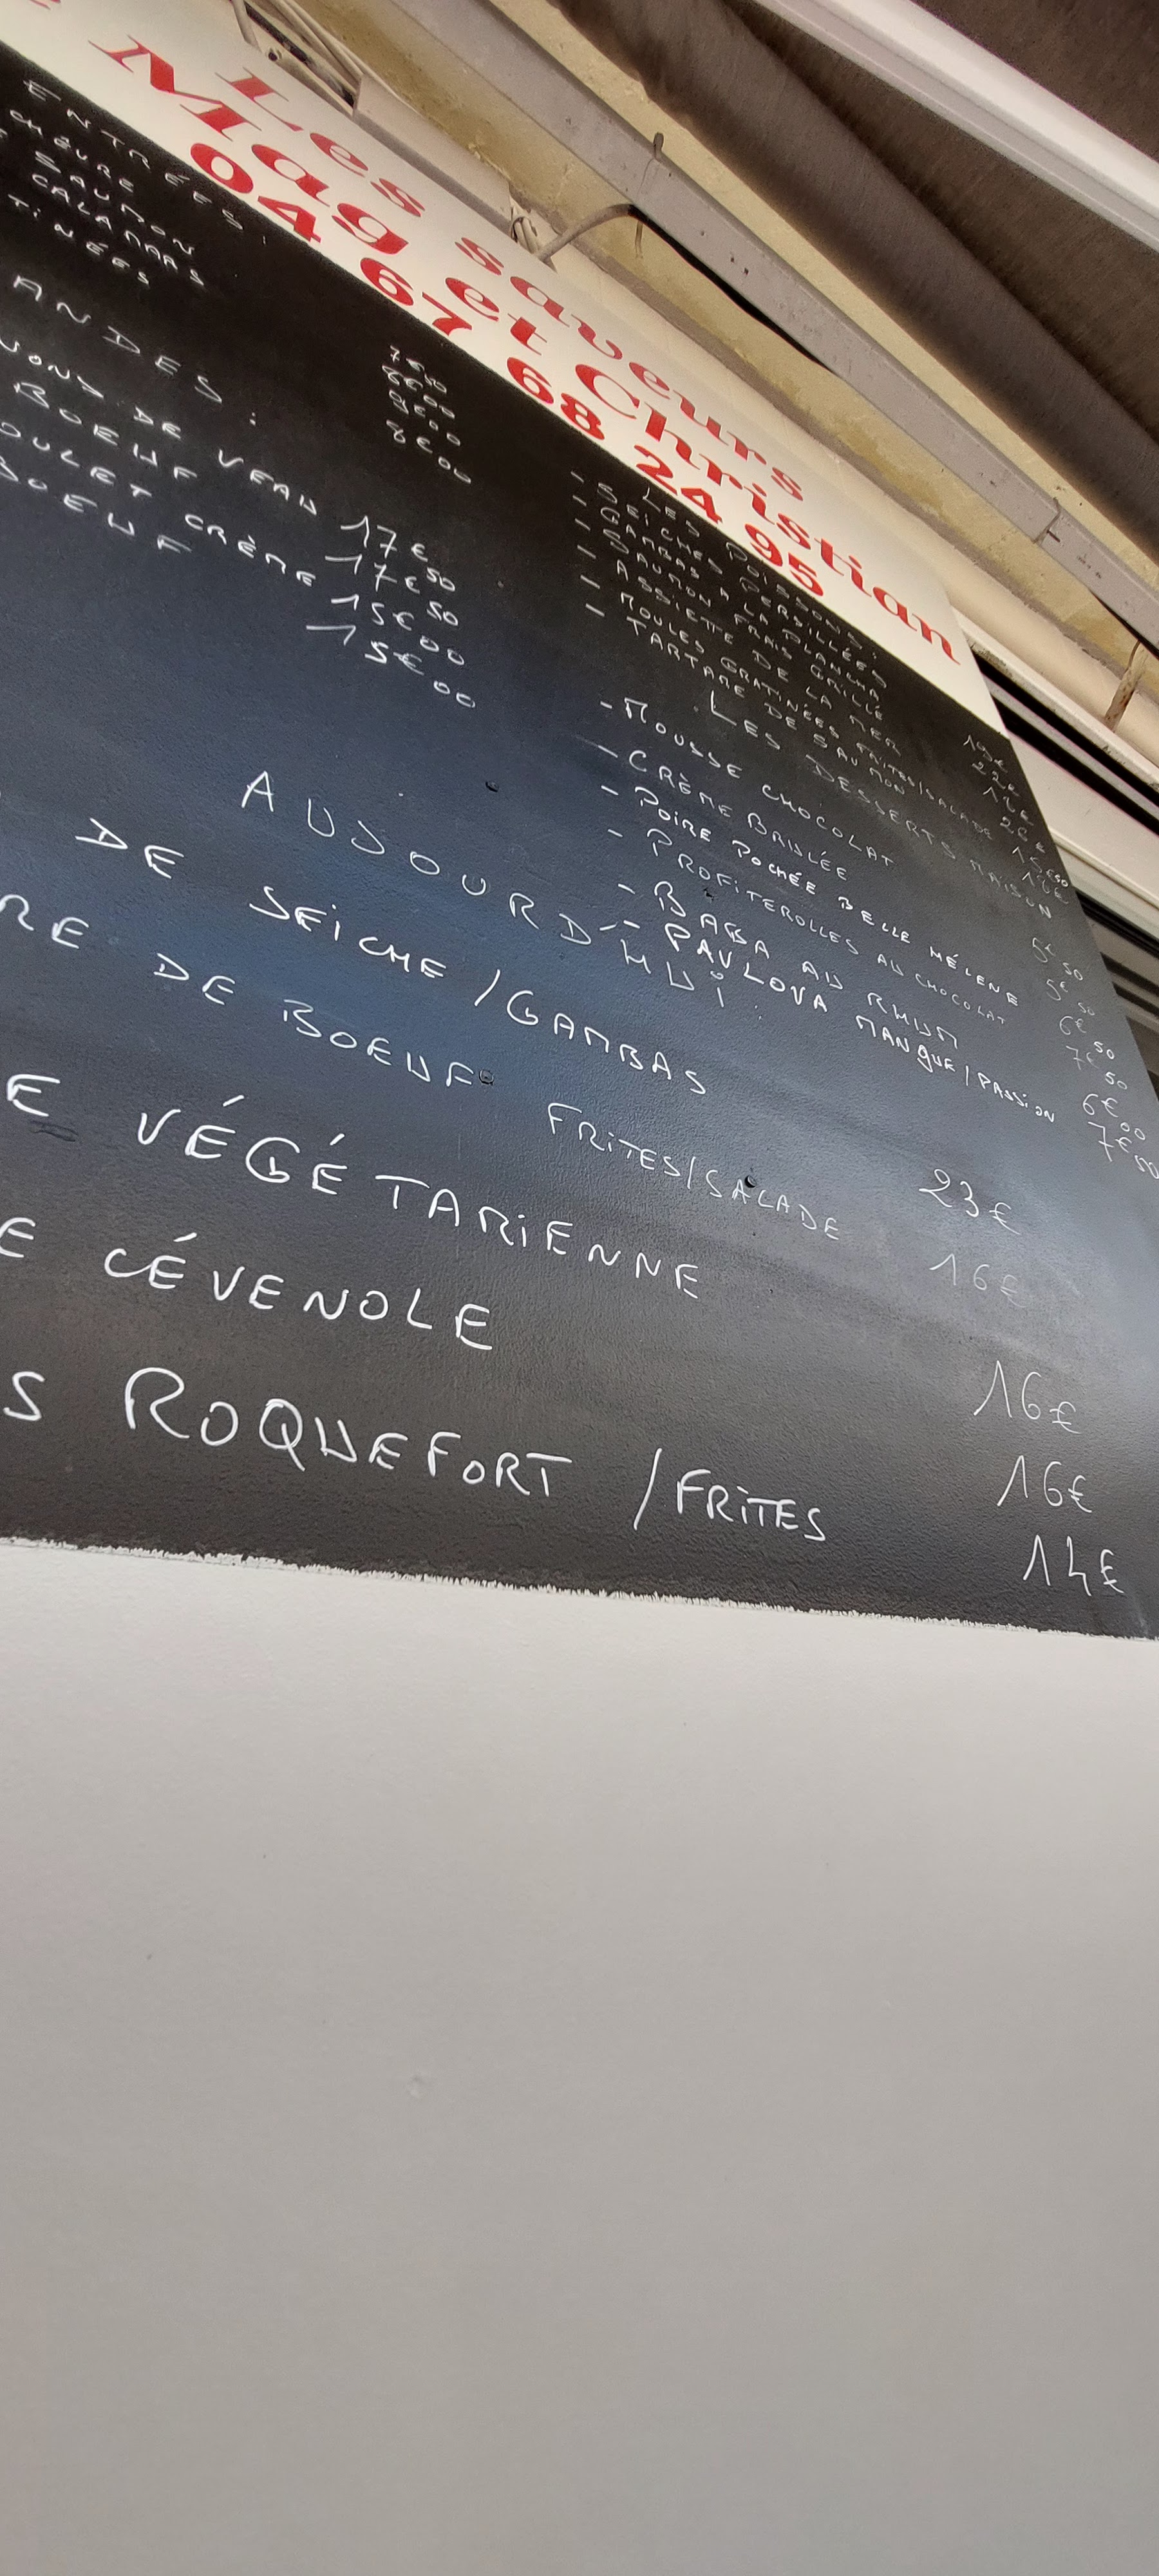 Les saveurs
Mag et Christian
04 67 68 24 95
ENTRÉES:
CHÈVRE 7€50
SAUMON
CALAMARS
TINÉES 8€00
ANDES:
DE VEAU 17€50
BOEUF 17€50
OULET CRÈME 15€00
BOEUF 15€00
LES POISSONS:
- SEICHES PERSILLÉES
- GAMBAS A LA PLANCHA
- SAUMON FRAIS GRILLÉ
- ASSIETTE DE LA MER
- MOULES GRATINÉES FRITES/SALADE
- TARTARE DE SAUMON
LES DESSERTS MAISON
- MOUSSE CHOCOLAT 5€50
- CRÈME BRULÉE 5€50
- POIRE POCHÉE BELLE HÉLÈNE 6€50
- PROFITEROLLES AU CHOCOLAT 7€50
- BABA AU RHUM 6€00
- PAVLOVA MANGUE/PASSION 7€50
AUJOURD'HUI:
DE SEICHE/GAMBAS 23€
RE DE BOEUF FRITES/SALADE 16€
E VÉGÉTARIENNE 16€
E CÉVENOLE 16€
S ROQUEFORT/FRITES 14€